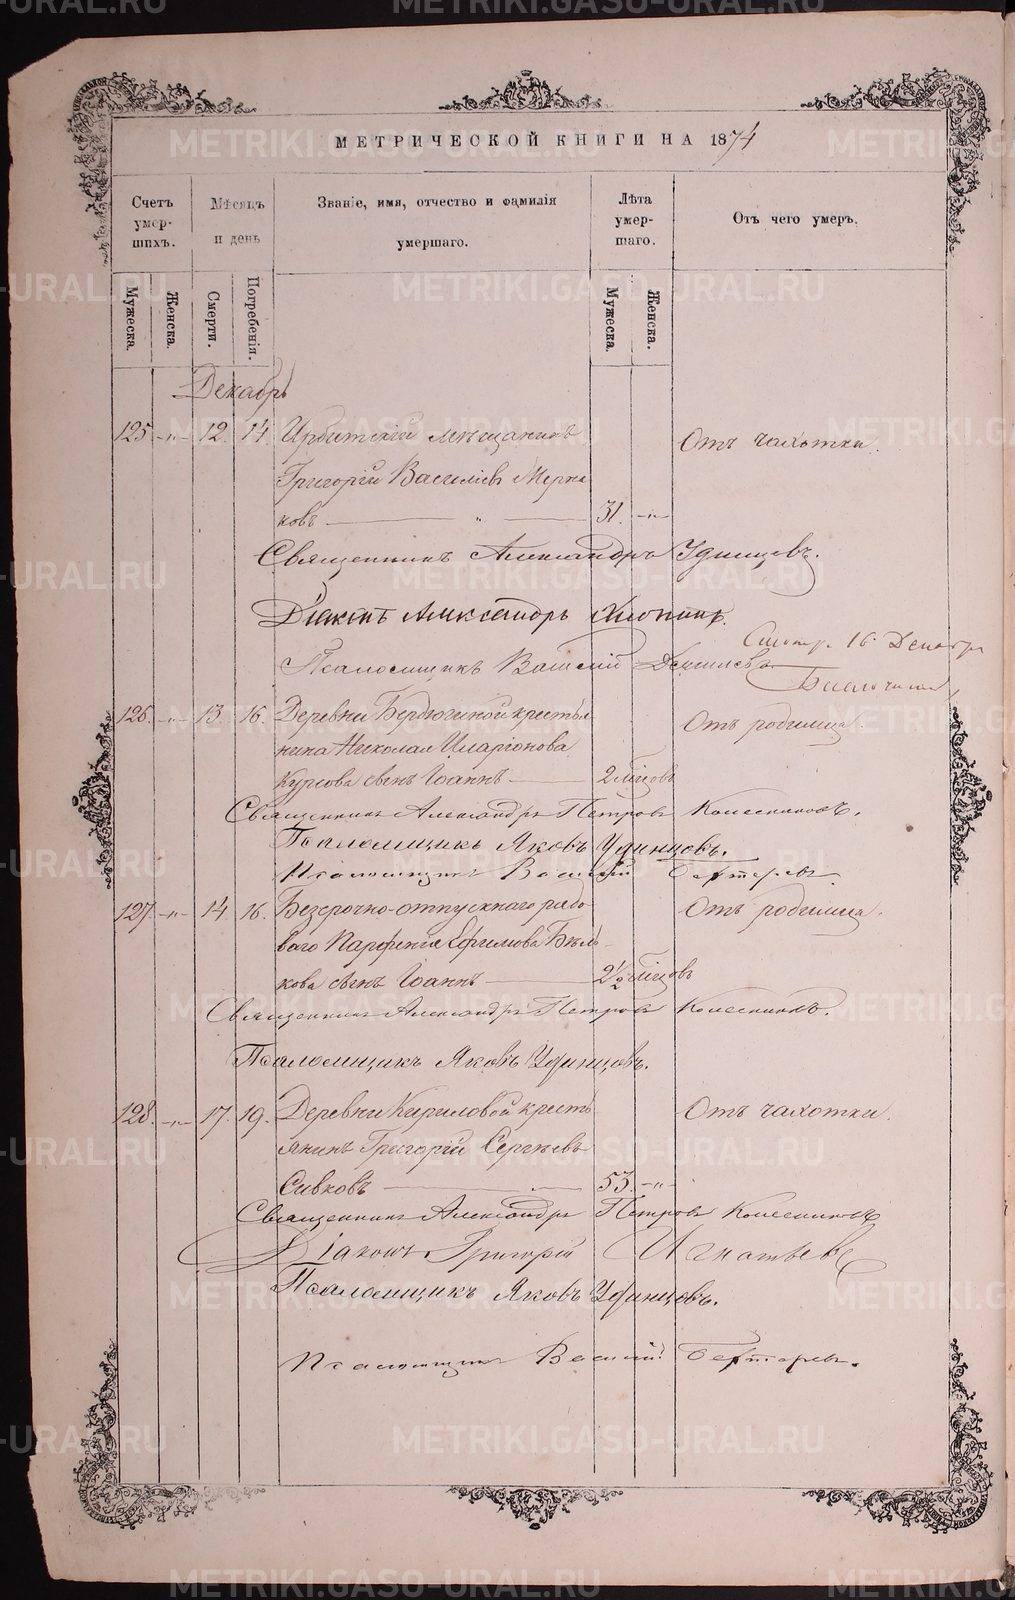 МЕТРИЧЕСКОЙ КНИГИ НА 1874
Счетъ умер- шихъ.
Мѣсяцъ и день
Званіе, имя, отчество и фамилія умершаго.
Лѣта умер- шаго.
Отъ чего умеръ.
Мужеска.
Женска.
Смерти.
Погребенія.
Мужеска.
Женска.
Декабрь
125. -„- 12. 14. Ирбитскій мѣщанинъ Отъ чахотки.
Григорій Василіевъ Мерка-
ковъ — „ — 31. -„-
Священникъ Александръ Удинцевъ.
Діаконъ Александръ Хлопинъ.
Смотр. 16 Декабря
Псаломщикъ Василій
Благочинный
126. -„- 13. 16. Деревни Бердюгиной крестья- Отъ родимца.
нина Николая Иларіонова
сынъ Іоаннъ — 2 мѣсцовъ
Священникъ Александръ Петровъ Колесниковъ.
Псаломщикъ Яковъ Удинцовъ.
Псаломщикъ Василій
127. -„- 14. 16. Безсрочно-отпускнаго рядо- Отъ родимца.
ваго Парфенія Ефимова Бѣль-
кова сынъ Іоаннъ — 2½ мѣсцовъ
Священникъ Александръ Петровъ Колесниковъ.
Псаломщикъ Яковъ Удинцовъ.
128. -„- 17. 19. Деревни Кириловой кресть- Отъ чахотки.
янинъ Григорій Сергѣевъ
Сивковъ — 53. -„-
Священникъ Александръ Петровъ Колесниковъ
Діаконъ Григорій Игнатьевъ
Псаломщикъ Яковъ Удинцовъ.
Псаломщикъ Василій
METRIKI.GASO-URAL.RU